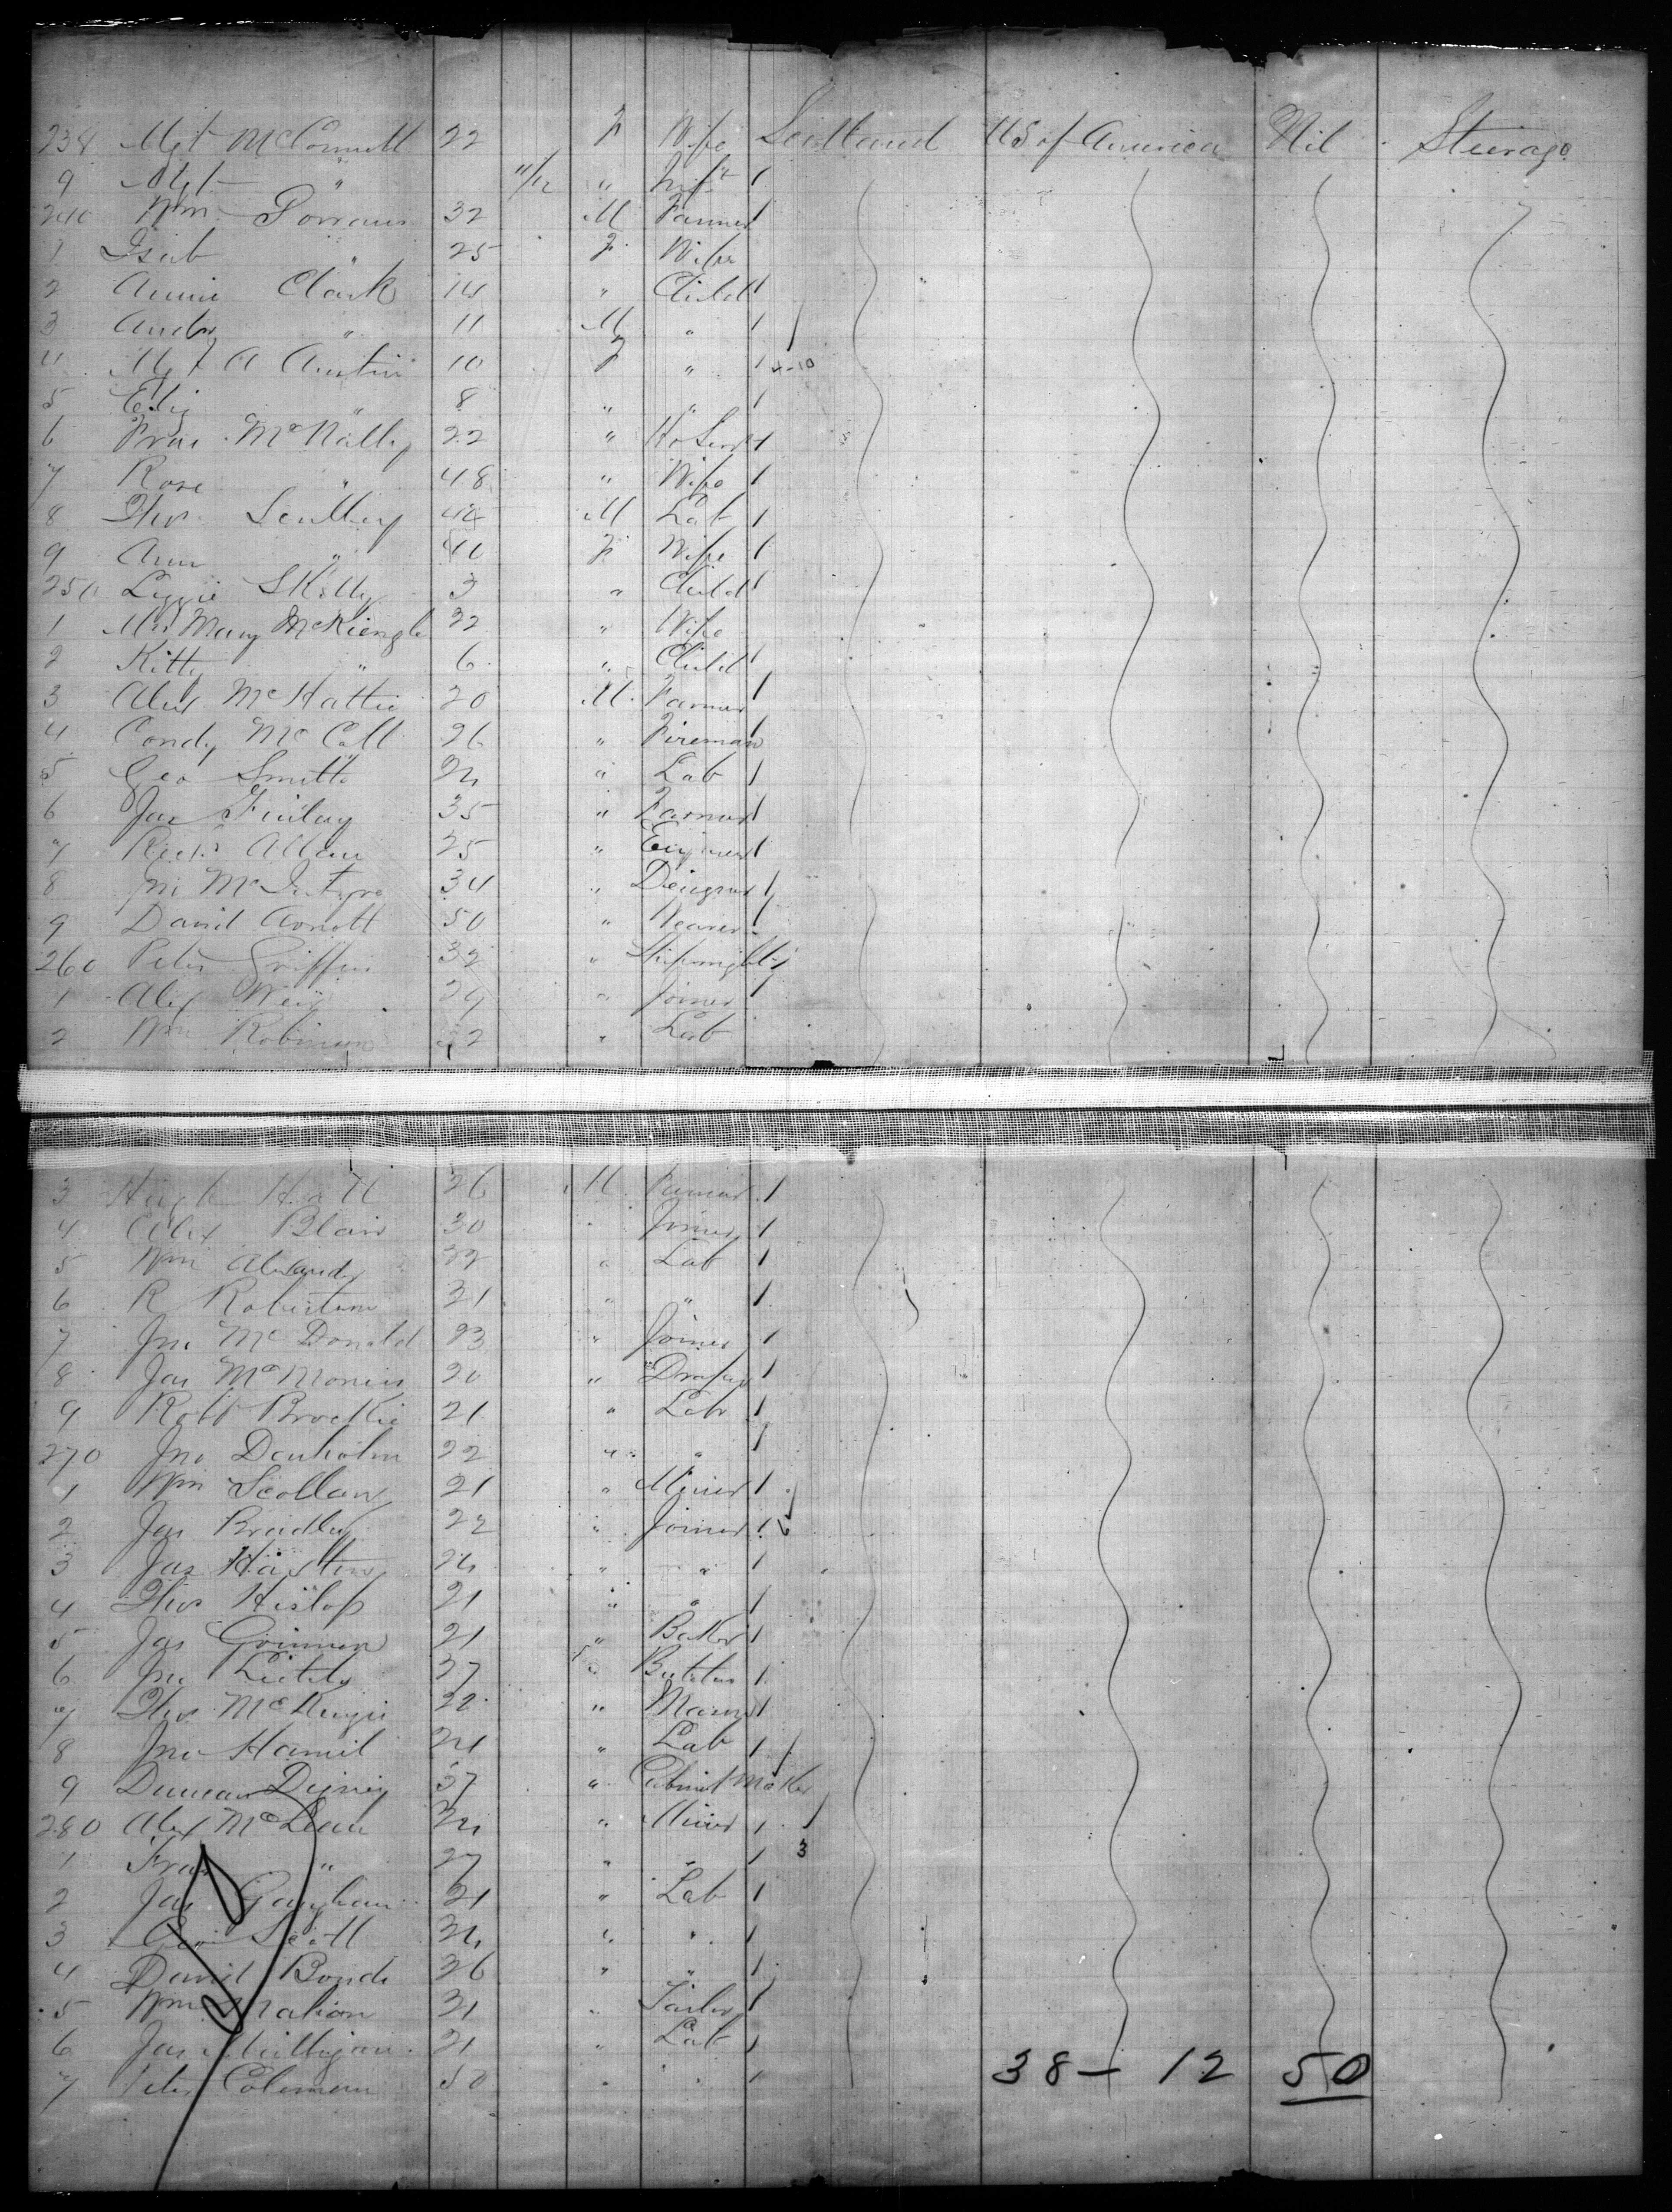 238 Mgt McConnell 22 F Wife Scotland US of America Nil Steerage
9 Mgt " 11/12 " Inft
240 Wm 32 M Farmer
1 Isab " 25 F Wife
2 Annie Clark 14 " Child
3 Andw " 11 M "
4 Mgt A Austin 10 F " 4-10
5 Eliz " 8 " "
6 Fras McNally 22 " Ho Servt
7 Rose " 48 " Wife
8 Thos Scullery 44 M Lab
9 Ann " 40 F Wife
250 Lizzie Skelly 3 " Child
1 Mrs Mary 32 " Wife
2 Kitty " 6 " Child
3 Alex McHattie 20 M Farmer
4 Condy McColl 26 " Fireman
5 Geo Smith " Lab
6 Jas Finlay 35 " Farmer
7 Richd Allan 25 " Engineer
8 Jno McIntyre 34 " Designer
9 David Arnott 50 " Weaver
260 Peter Griffin 32 " Shipwright
1 Alex Weir 29 " Joiner
2 Wm Robinson " Lab
3 Hugh 26 M Farmer
4 Alex Blair 30 " Joiner
5 Wm Alexander 22 " Lab
6 R Robertson 21 " "
7 Jno McDonald 23 " Joiner
8 Jas McMonies 20 " Draper
9 Robt Brockie 21 " Lab
270 Jno Denholm 22 " "
1 Wm Scollan 21 " Miner
2 Jas Bradley 22 " Joiner 6
3 Jas " "
4 Thos Hislop 21 " "
5 Jas 21 " Baker
6 Jno 37 "
7 Thos McKenzie 22 " Mason
8 Jno Hamil 21 " Lab
9 Duncan 37 " Cabinet Maker
280 Alex McLean " Miner
1 Fras " 27 " " 3
2 Jas 21 " Lab
3 Scott " "
4 David 36 " "
5 Wm 21 "
6 Jas Milligan 21 " Lab
7 Peter Coleman 50 " "
38 – 12 50